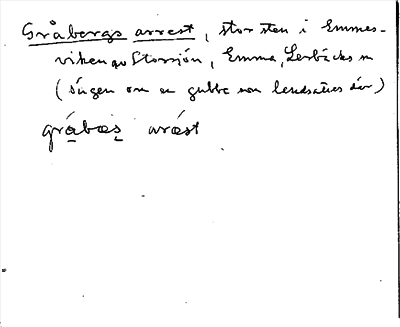 Gråbergs arrest, stor sten i Emmes-
viken av Storsjön, Emma, Lerbäcks sn
(sägen om en gubbe som landsattes där)
gråbæs aræst